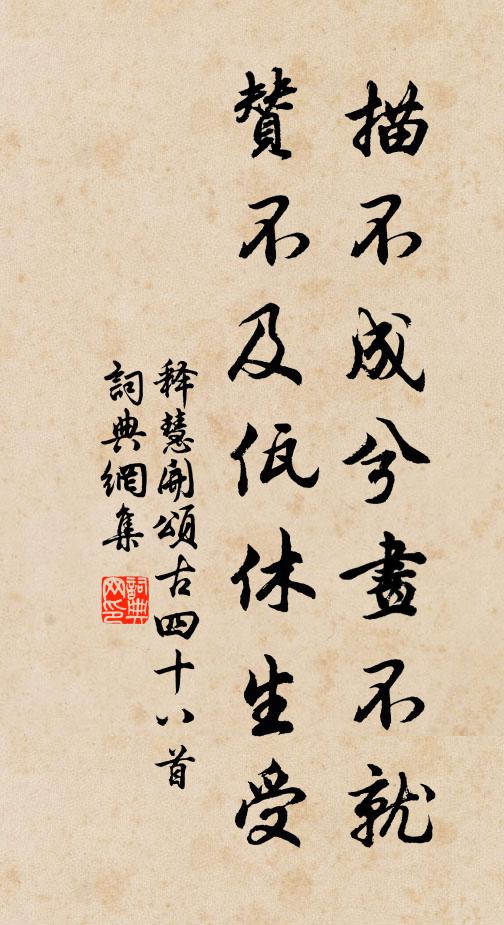 描不成兮畫不就
賛不及伍休生受
释慧開頌古四十八首
詞典網集
詞典
网印